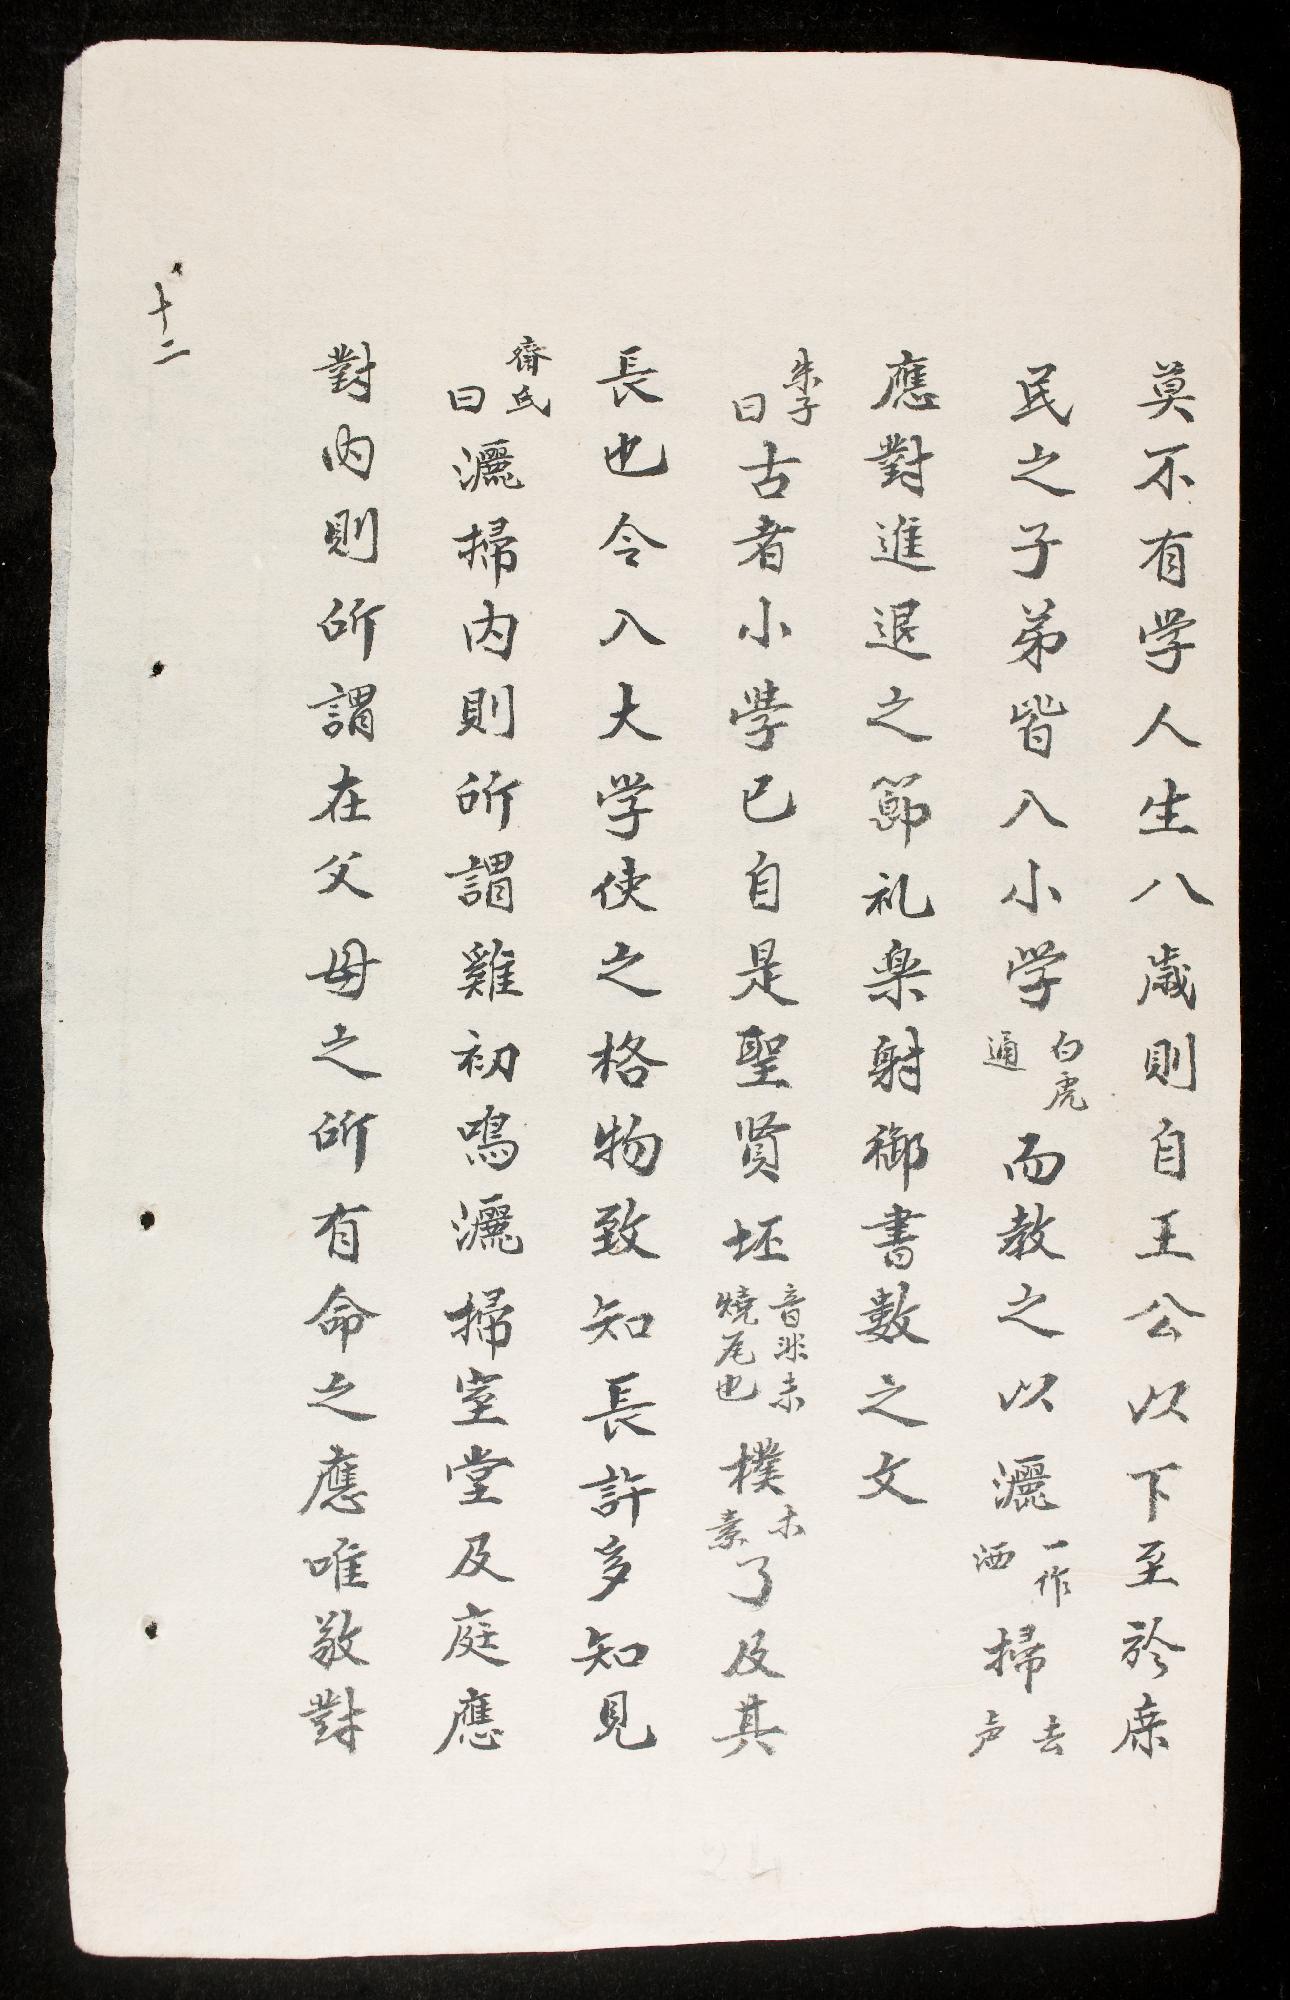 莫不有学人生八歳則自王公以下至於庶
民之子弟皆入小学白虎通而教之以灑一作洒掃去声
應對進退之節礼楽射御書数之文
朱子曰古者小學已自是聖賢坯音丕未燒瓦也樸木素了及其
長也令入大学使之格物致知長許多知見
齊氏曰灑掃内則所謂雞初鳴灑掃室堂及庭應
對内則所謂在父母之所有命之應唯敬對
十二